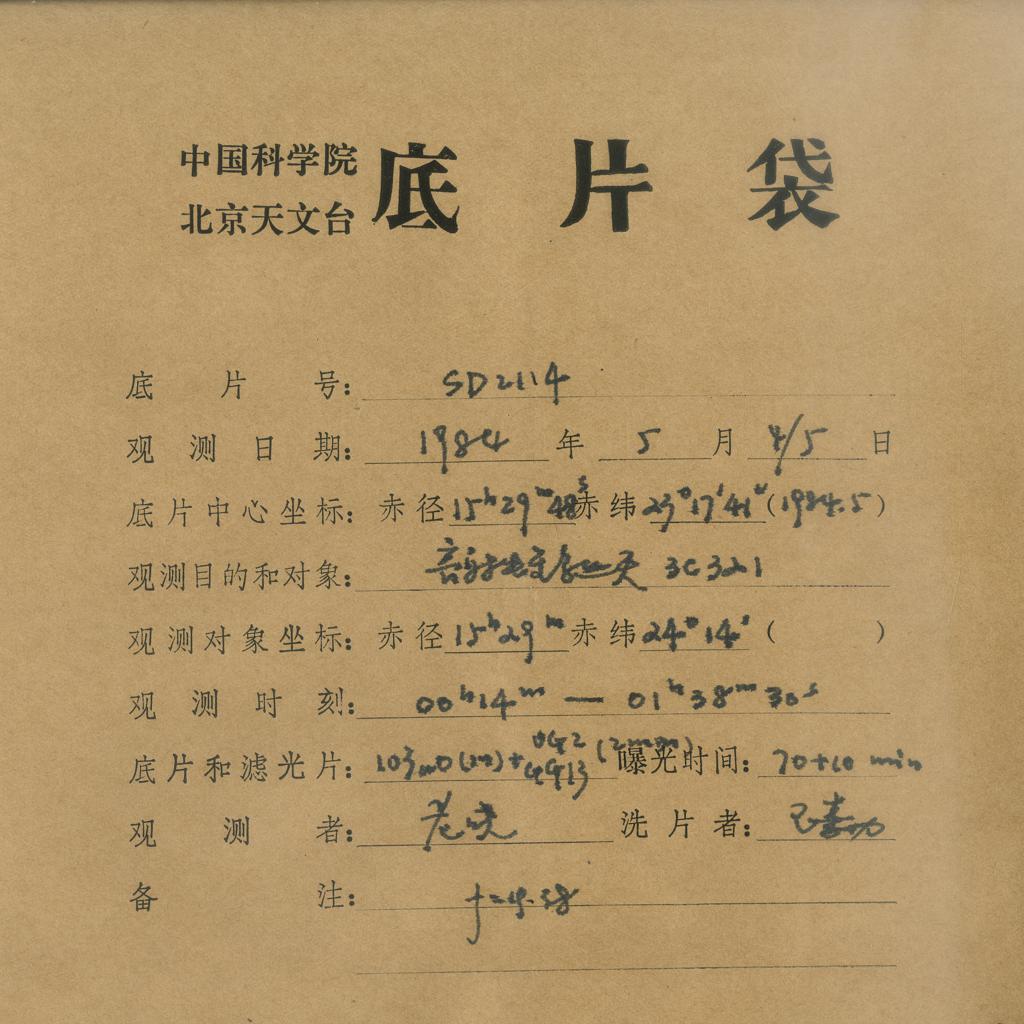 中国科学院
北京天文台
底片袋
底片号：SD2114
观测日期：1984年5月4/5日
底片中心坐标：赤径15ʰ29ᵐ48ˢ赤纬23°17′41″(1984.5)
观测目的和对象：3C321
观测对象坐标：赤径15ʰ29ᵐ赤纬24°14′( )
观测时刻：00ʰ14ᵐ—01ʰ38ᵐ30ˢ
底片和滤光片：UG2(2mm)
GG13 曝光时间：70+10 min
观测者：
洗片者：
备注：